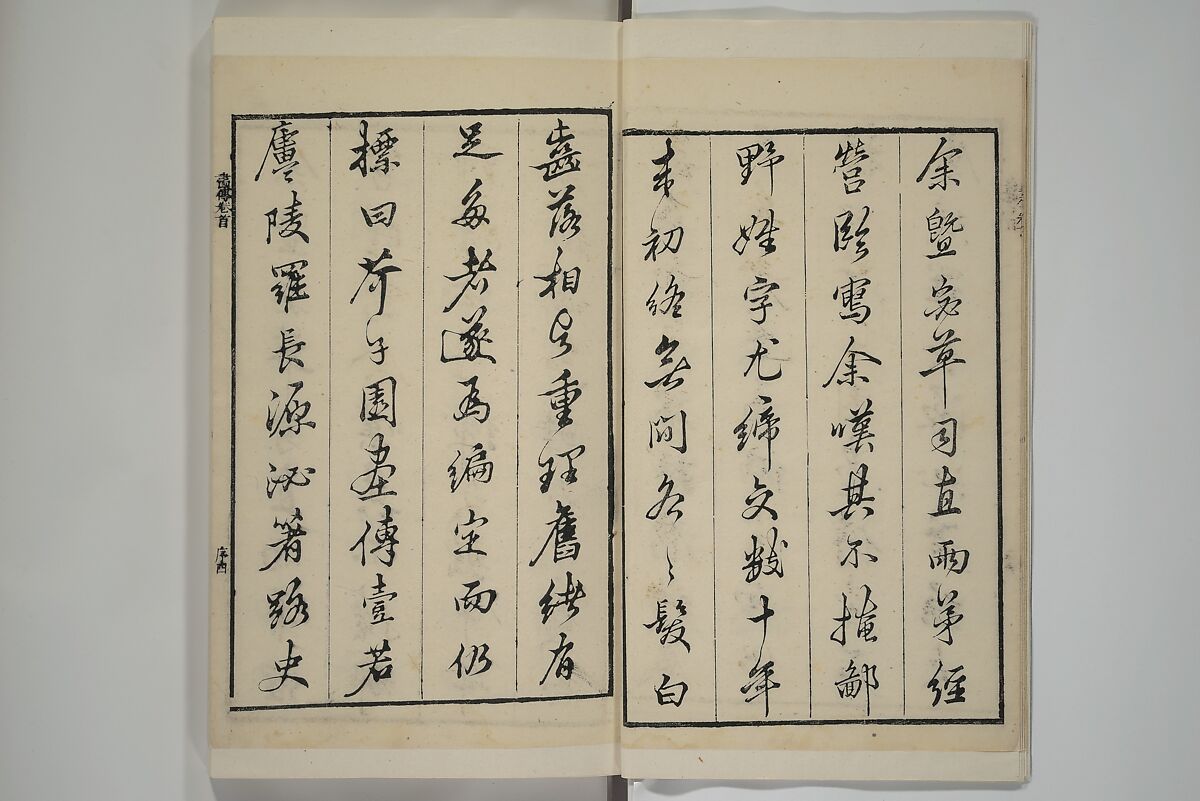 余暨宓草司直兩弟經
營臨寫余嘆其不掩鄙
野姓字尤締文數十年
来初終無間各〻髮白
齒落相与重理舊緒有
足多者遂為編定而仍
標曰芥子園畫傳壹若
廬陵羅長源泌著路史
畫傳卷首
序四